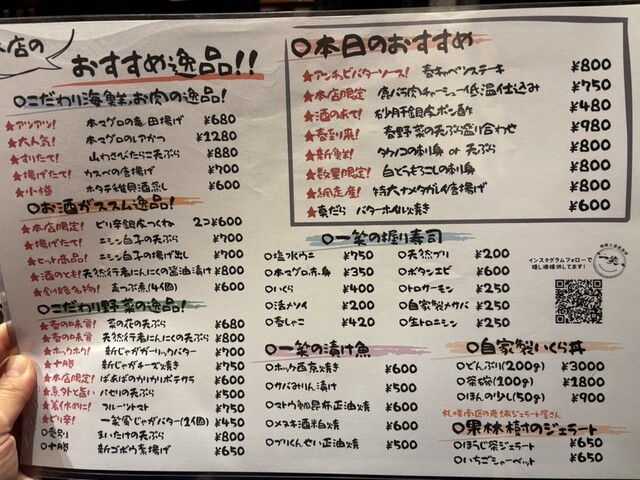 本店の
おすすめ逸品!!
○こだわり海鮮、お肉の逸品!
★アツアツ! 本マグロの竜田揚げ ¥680
★大人気! 本マグロのレアかつ ¥1280
★すりたて! 山わさびたらこ天ぷら ¥880
★揚げたて! カスベの唐揚げ ¥700
★小樽 ホタテ稚貝酒蒸し ¥600
○お酒がススム逸品!
★本店限定! ピリ辛銀皮つくね 2コ¥600
★揚げたて! ニシン白子の天ぷら ¥700
★ヒット商品! ニシン白子の揚げ出し ¥700
★酒のとも! 天然行者にんにくの醤油漬け ¥800
★釧路名物! まつぶ煮(4個) ¥600
○こだわり野菜の逸品!
★春の味覚! 菜の花の天ぷら ¥680
★春の味覚 天然行者にんにくの天ぷら ¥800
★ホックホク! 新じゃがガーリックバター ¥700
★十勝 新じゃがチーズ焼き ¥750
★本店限定! ばあばのカリカリポテサラ ¥600
★意外と旨い パセリの天ぷら ¥500
★箸休めに! フルーツトマト ¥750
★ピリ辛! 一笑風じゃがバター(2個) ¥450
○愛別 まいたけの天ぷら ¥800
○十勝 新ゴボウ素揚げ ¥650
○本日のおすすめ
★アンチョビバターソース! 春キャベツステーキ ¥800
★本店限定 鹿バラ肉チャーシュー低温仕込み ¥750
★酒のあて! 砂肝干銀皮ポン酢 ¥480
★春到来! 春野菜の天ぷら盛り合わせ ¥980
★新鮮! タケノコの刺身 or 天ぷら ¥800
★数量限定! 白とうもろこしの刺身 ¥800
★網走産! 特大ナメタガレイ唐揚げ ¥800
★真だら バターホイル焼き ¥600
○一笑の握り寿司
○塩水ウニ ¥750
○本マグロ赤身 ¥350
○いくら ¥400
○活ツブ ¥200
○巻しゃこ ¥420
○天然ブリ ¥200
○ボタンエビ ¥600
○トロサーモン ¥250
○自家製〆サバ ¥250
○生トロニシン ¥250
一笑
インスタグラムフォローで
隠し酒提供してます!
○一笑の漬け魚
○ホッケ西京焼き ¥600
○サバみりん漬け ¥500
○マトウ鯛昆布正油焼 ¥600
○メヌキ酒粕焼 ¥600
○ブリくんせい正油焼 ¥500
○自家製いくら丼
○どんぶり(200g) ¥3000
○茶碗(200g) ¥1800
○ほんの少し(50g) ¥900
札幌南区の老舗ジェラート屋さん
○果林樹のジェラート
○ほうじ茶ジェラート ¥650
○いちごシャーベット ¥650